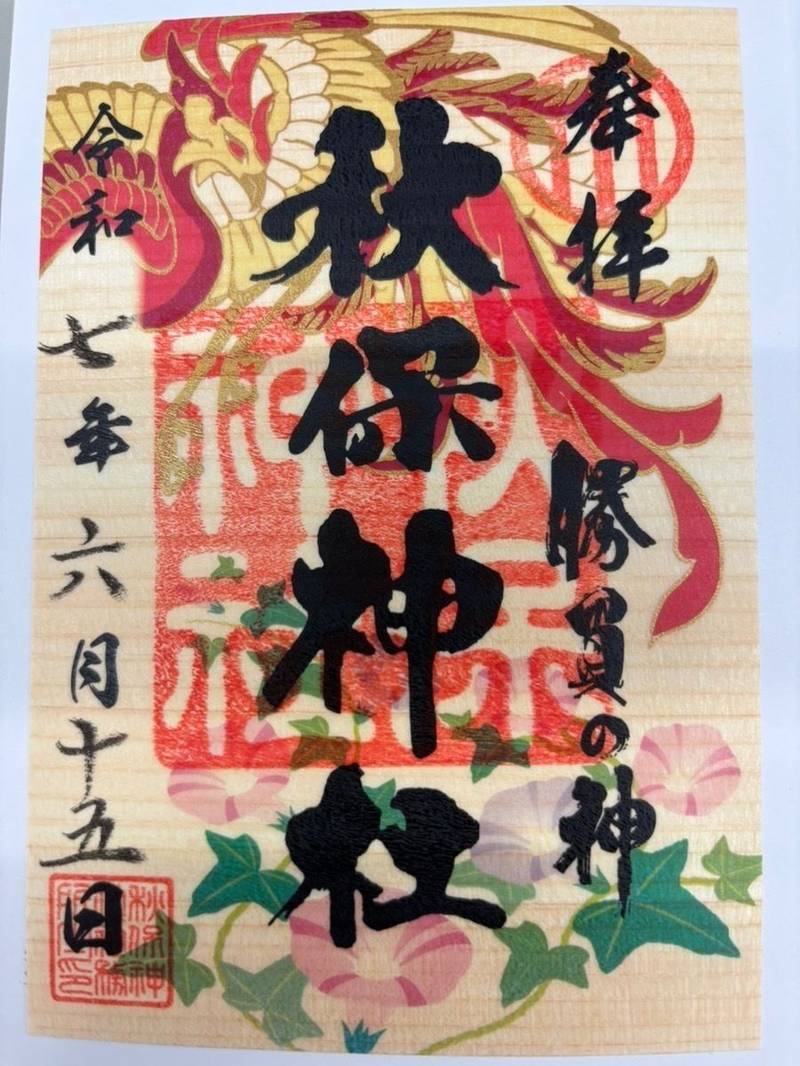 奉拝
勝負の神
秋保神社
令和七年六月十五日